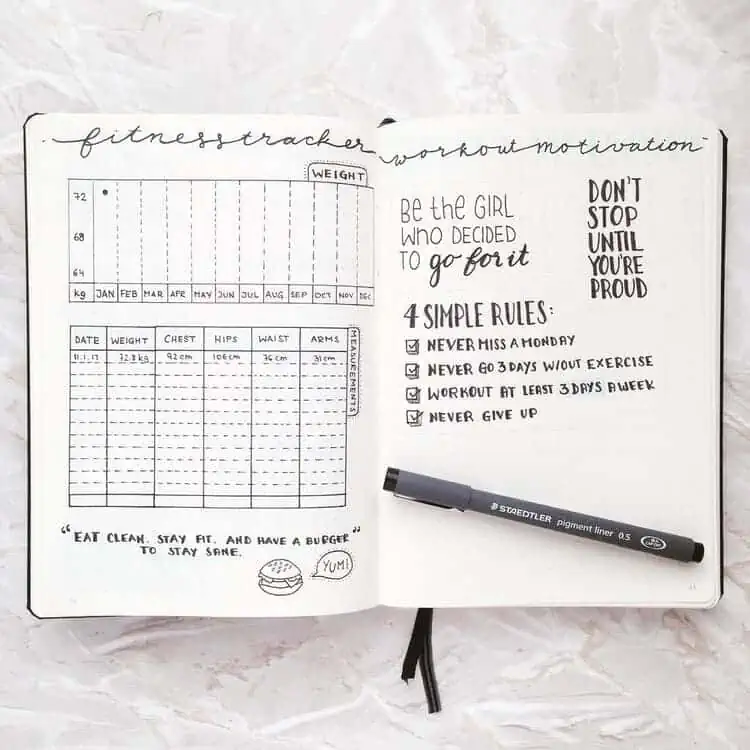 fitnesstracker
WEIGHT
72
68
64
kg JAN FEB MAR APR MAY JUN JUL AUG SEP OCT NOV DEC
DATE WEIGHT CHEST HIPS WAIST ARMS
MEASUREMENTS
92cm 106cm 76cm 31cm
"EAT CLEAN. STAY FIT. AND HAVE A BURGER
TO STAY SANE."
YUM!
workout motivation
Be the GIRL
WHO DECIDED
TO go for it
DON'T
STOP
UNTIL
YOU'RE
PROUD
4 SIMPLE RULES:
NEVER MISS A MONDAY
NEVER GO 3 DAYS W/OUT EXERCISE
WORKOUT AT LEAST 3 DAYS A WEEK
NEVER GIVE UP
STAEDTLER pigment liner 0.5